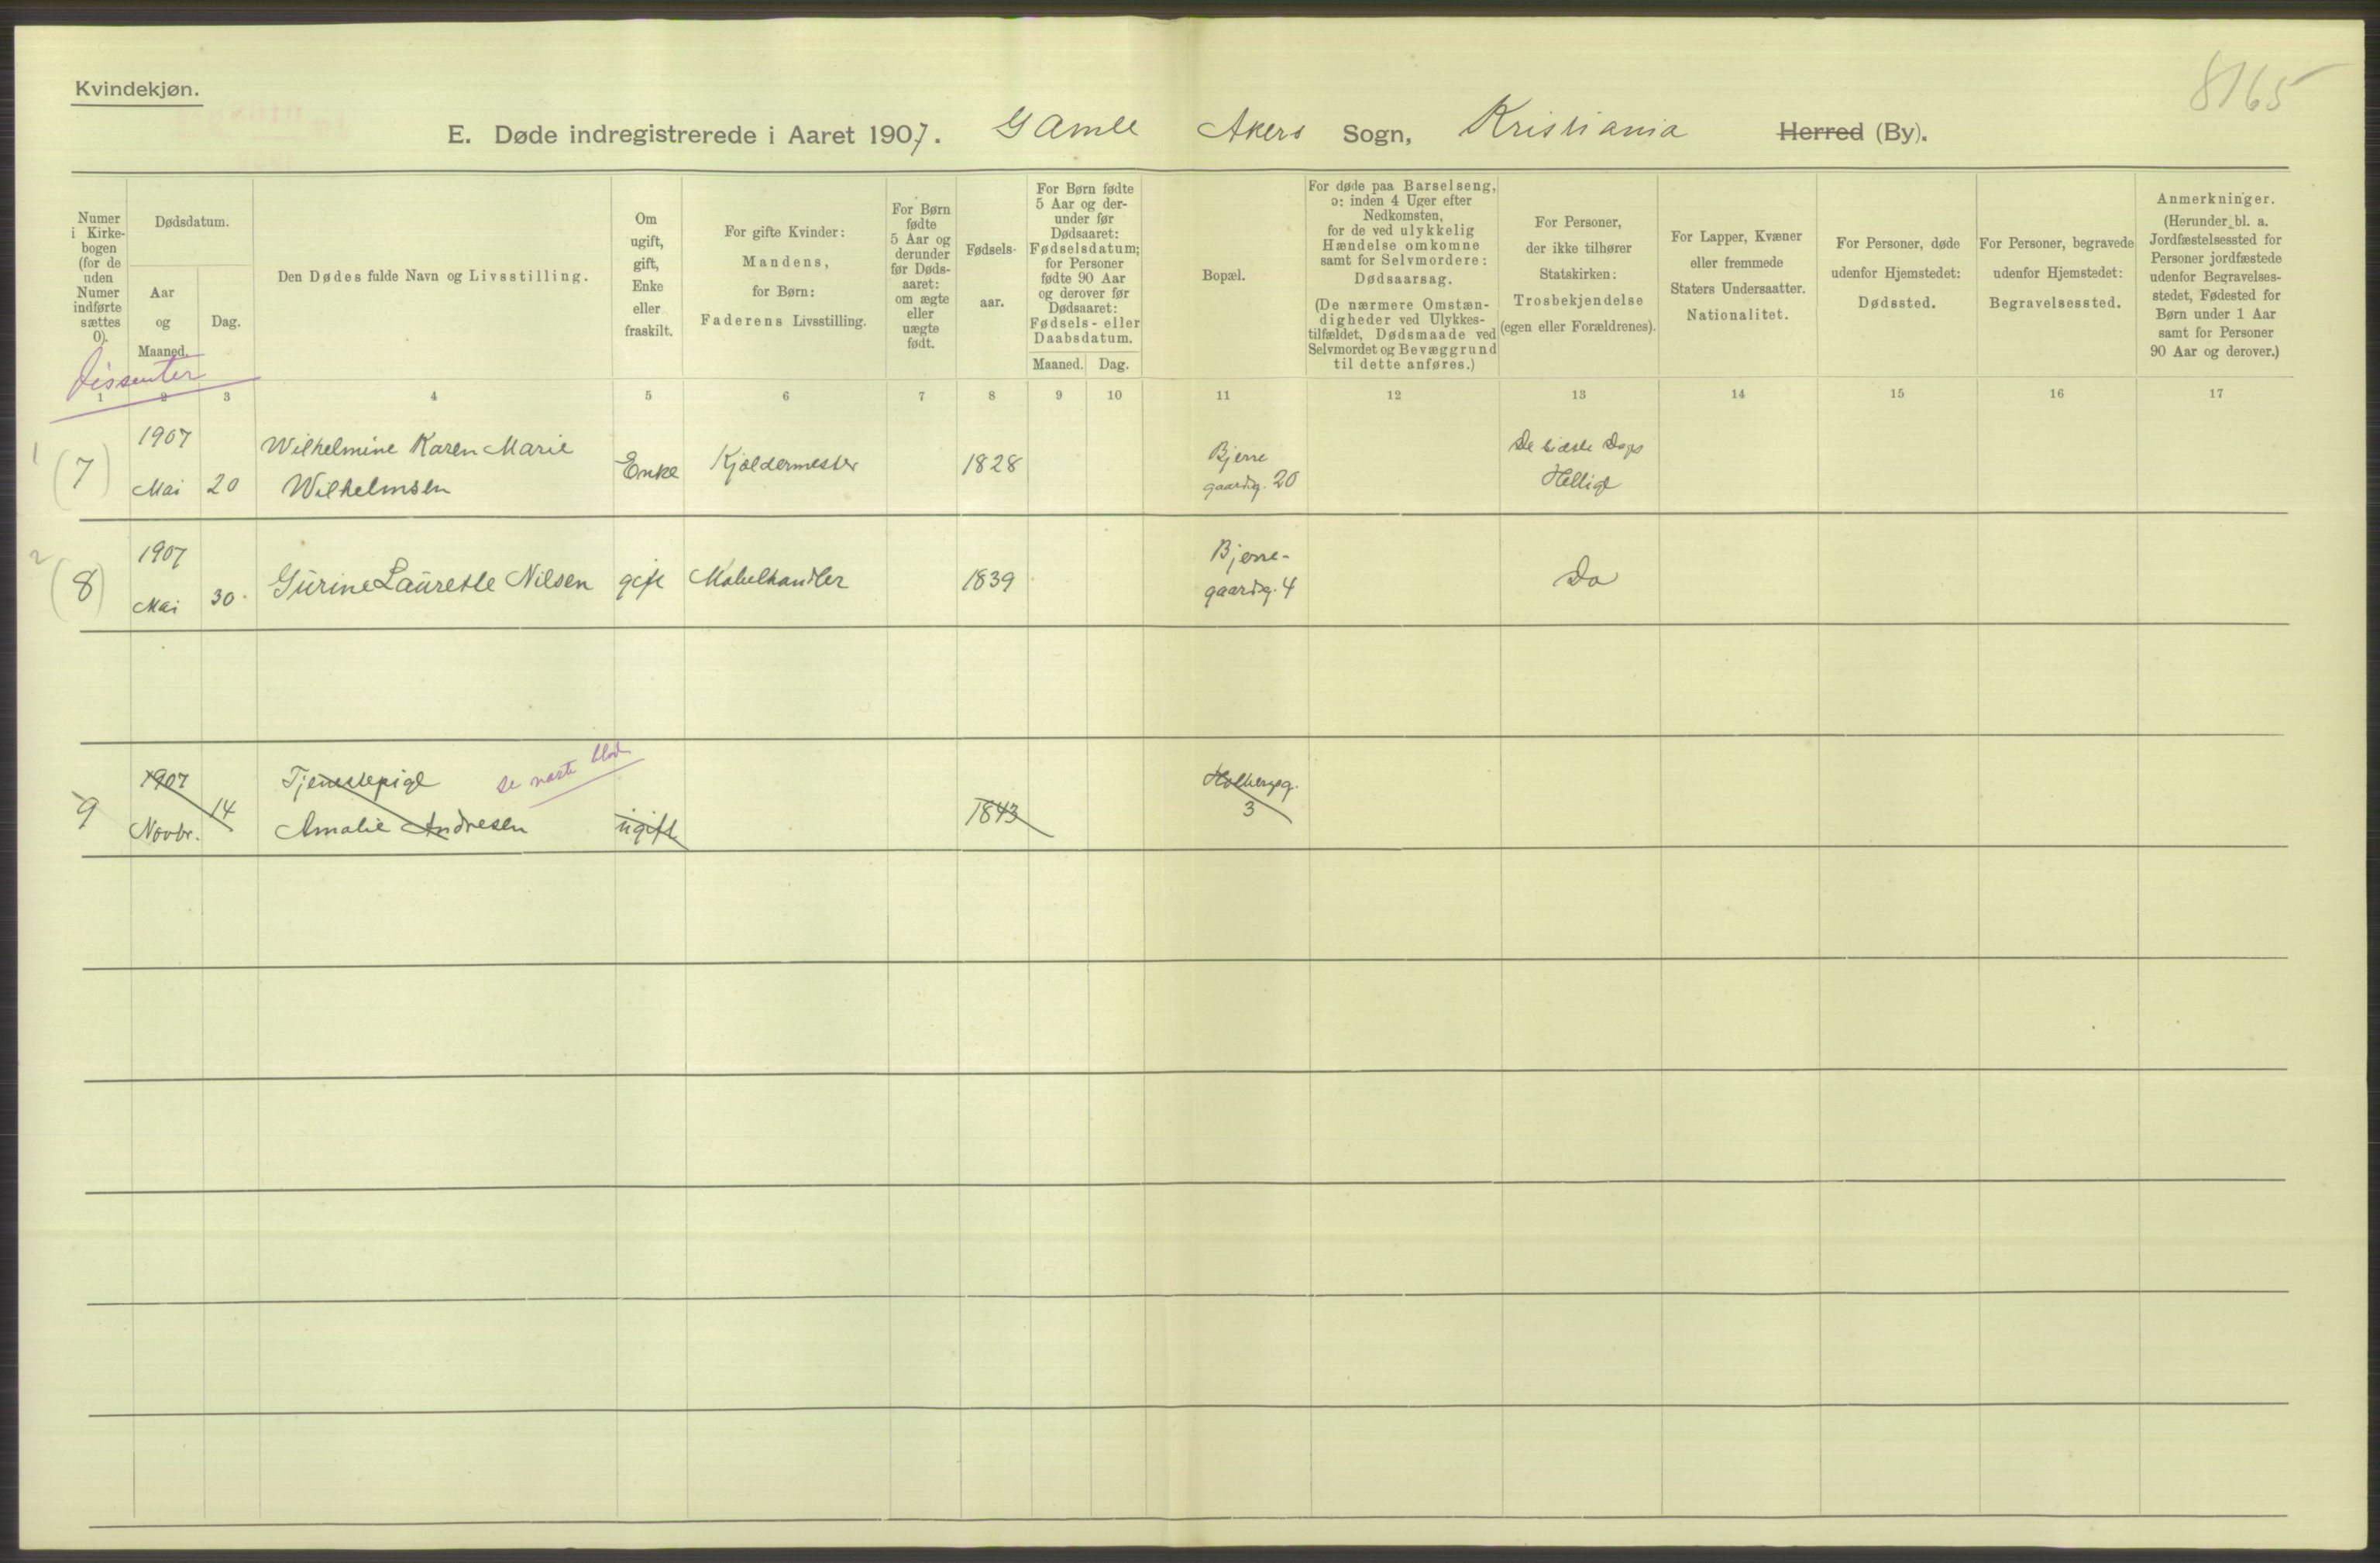 Kvindekjøn.
8165
E. Døde indregistrerede i Aaret 1907. Gamle Akers Sogn, Kristiania Herred (By).
Numer
i Kirke-
bogen
(for de
uden
Numer
indførte
sættes
0).
Dødsdatum.
Aar
og
Maaned.
Dag.
Den Dødes fulde Navn og Livsstilling.
Om
ugift,
gift,
Enke
eller
fraskilt.
For gifte Kvinder:
Mandens,
for Børn:
Faderens Livsstilling.
For Børn
fødte
5 Aar og
derunder
før Døds-
aaret:
om ægte
eller
uægte
født.
Fødsels-
aar.
For Børn fødte
5 Aar og der-
under før
Dødsaaret:
Fødselsdatum;
for Personer
fødte 90 Aar
og derover før
Dødsaaret:
Fødsels- eller
Daabsdatum.
Maaned. Dag.
Bopæl.
For døde paa Barselseng,
ɔ: inden 4 Uger efter
Nedkomsten,
for de ved ulykkelig
Hændelse omkomne
samt for Selvmordere:
Dødsaarsag.
(De nærmere Omstæn-
digheder ved Ulykkes-
tilfældet, Dødsmaade ved
Selvmordet og Bevæggrund
til dette anføres.)
For Personer,
der ikke tilhører
Statskirken:
Trosbekjendelse
(egen eller Forældrenes).
For Lapper, Kvæner
eller fremmede
Staters Undersaatter.
Nationalitet.
For Personer, døde
udenfor Hjemstedet:
Dødssted.
For Personer, begravede
udenfor Hjemstedet:
Begravelsessted.
Anmerkninger.
(Herunder bl. a.
Jordfæstelsessted for
Personer jordfæstede
udenfor Begravelses-
stedet, Fødested for
Børn under 1 Aar
samt for Personer
90 Aar og derover.)
Dissenter
1 2 3 4 5 6 7 8 9 10 11 12 13 14 15 16 17
1
(7)
1907
Mai 20
Wilhelmine Karen Marie
Wilhelmsen
Enke
Kjældermester
1828
Bjerre
gaardsg. 20
De sidste Dages
Hellige
2
(8)
1907
Mai 30.
Gurine Laurette Nilsen
gift
Møbelhandler
1839
Bjerre-
gaardsg. 4
Do
9
1907
Novbr. 14
Tjenestepige
Amalie Andresen
se næste blad
ugift
1843
Holbergsg.
3